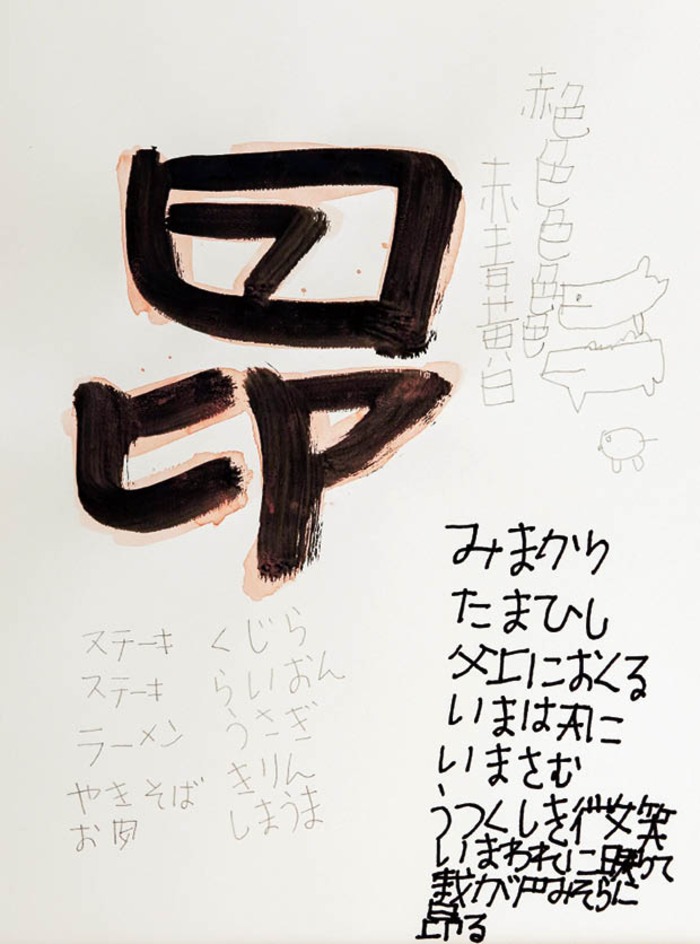 昂
赤色色色色色
赤青黄白
ステーキ
ステーキ
ラーメン
やきそば
お肉
くじら
らいおん
うさぎ
きりん
しまうま
みまかり
たまひし
父上におくる
いまは天に
いまさむ
うつくしき微笑
いまわれに映りて
が戸みそらに
昂る